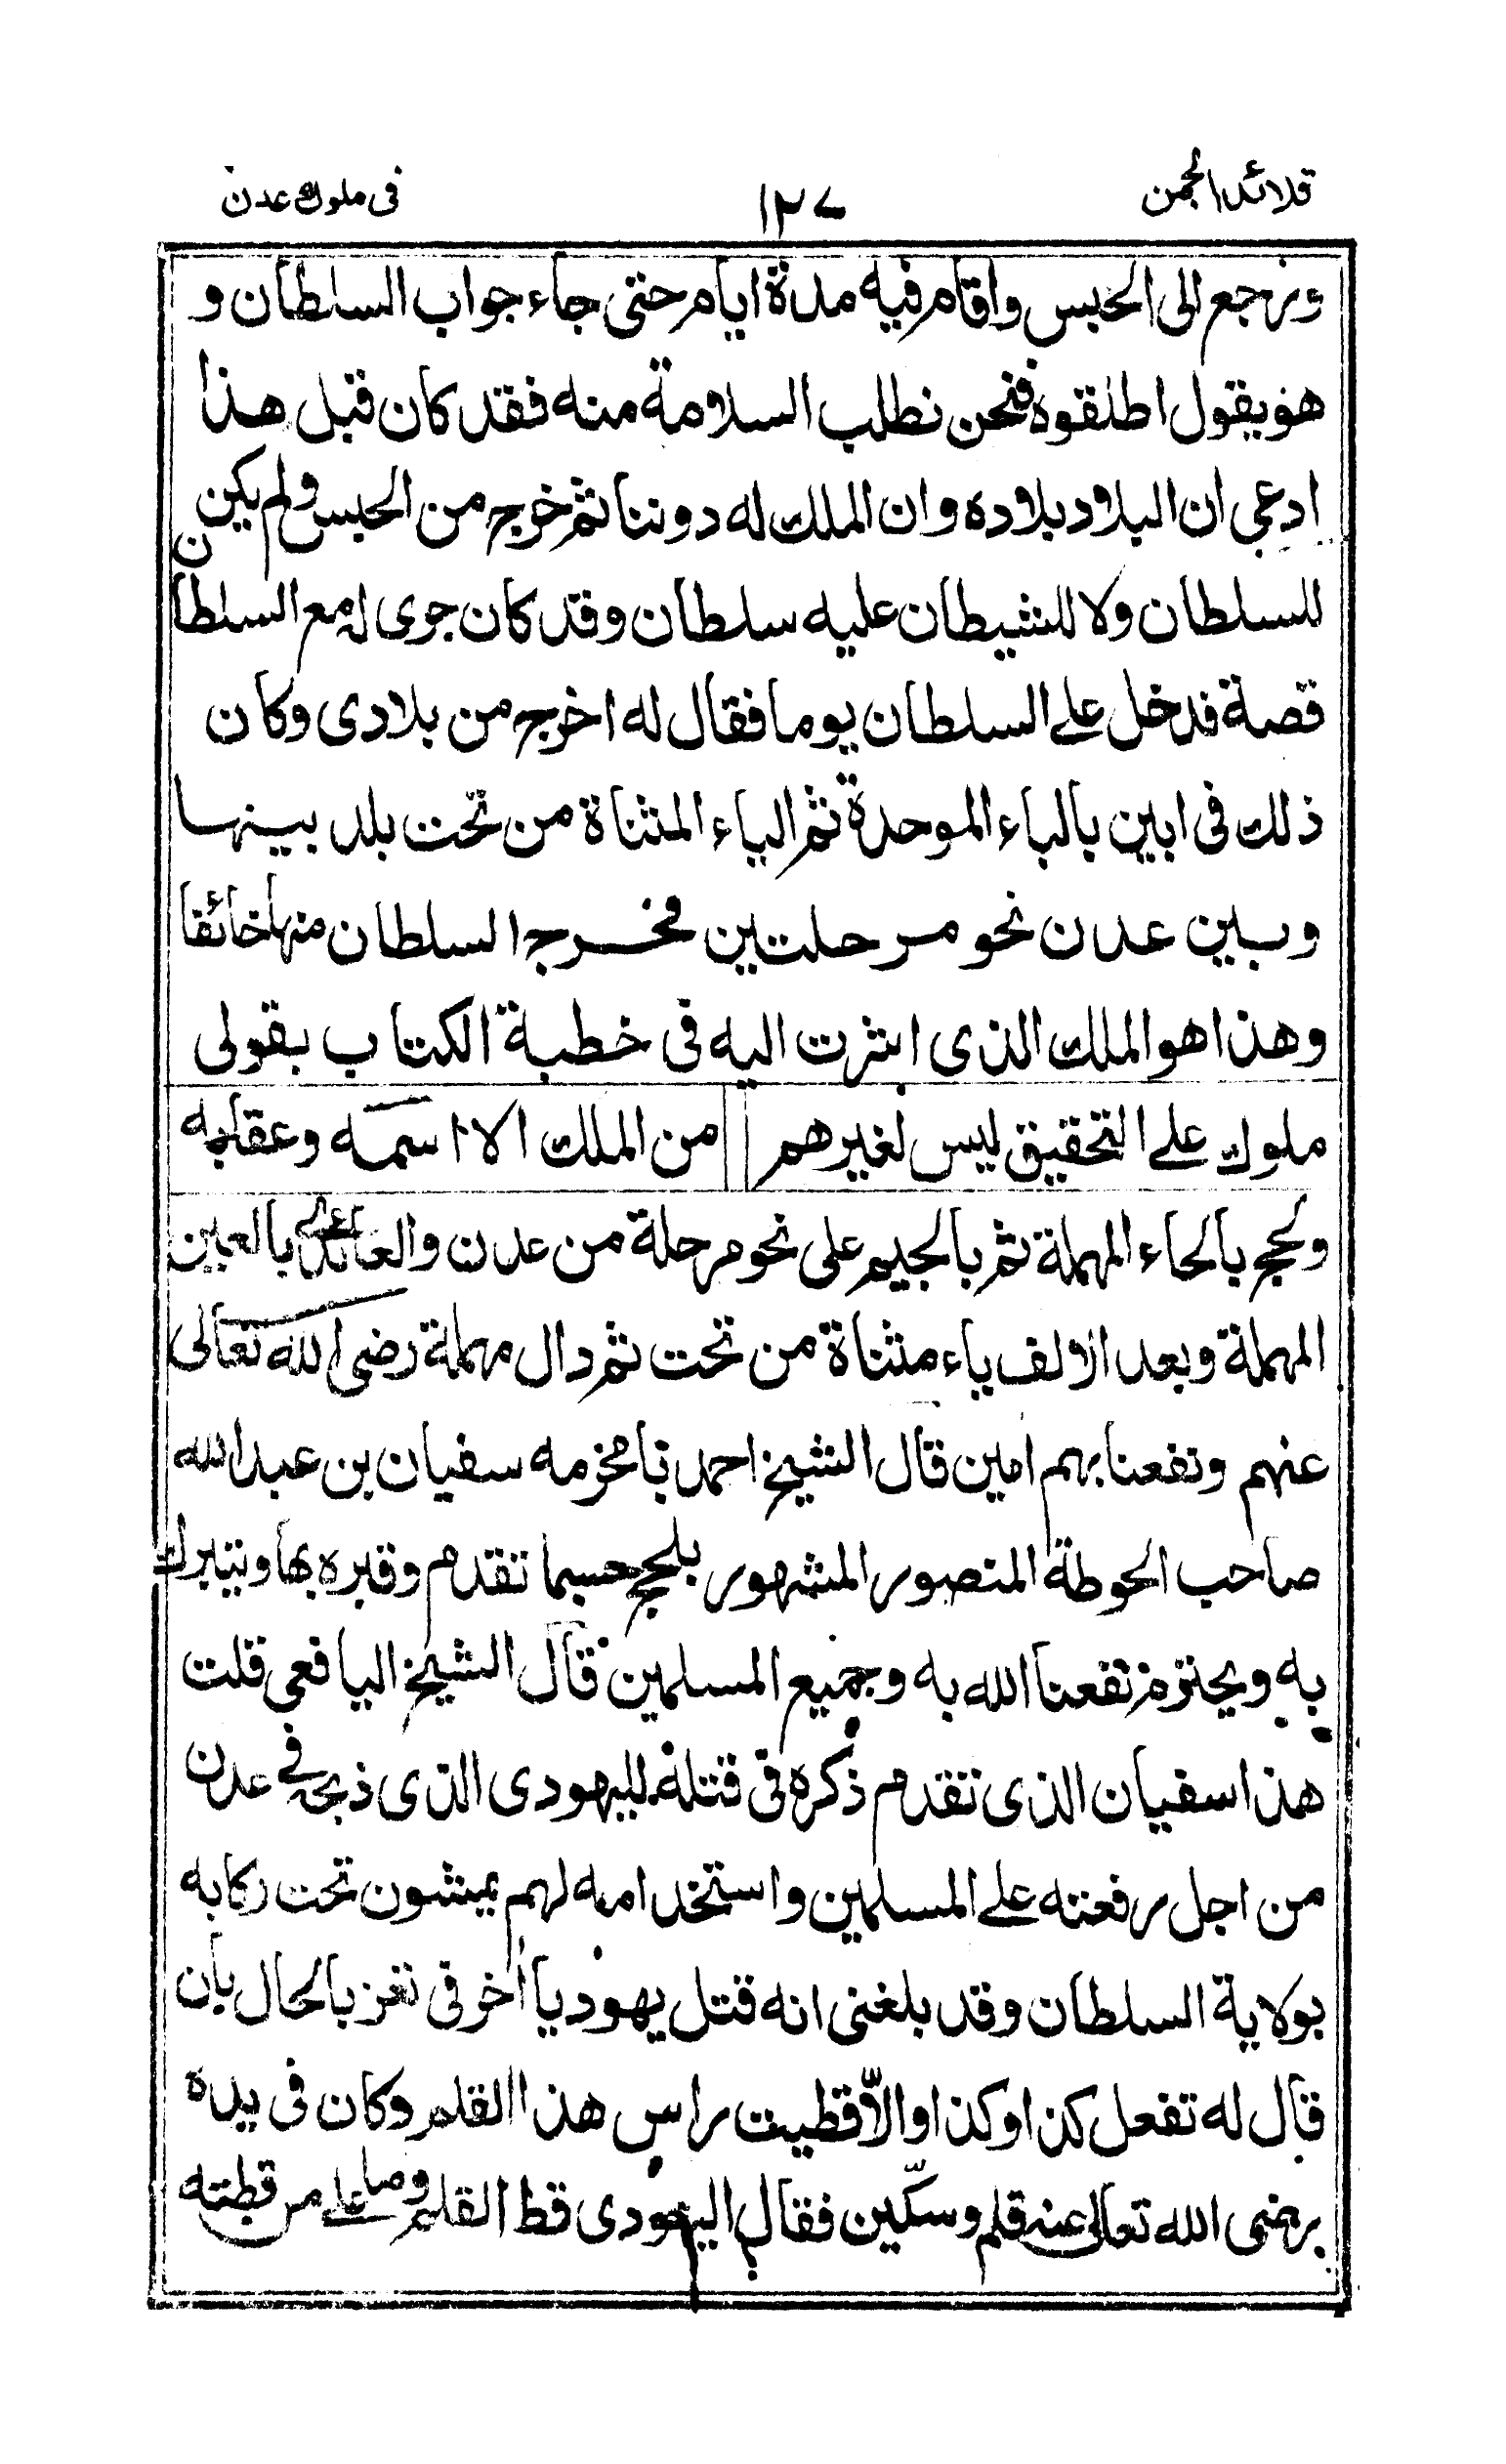 قلائد الجمن ١٢٧ في ملوك عدن
ورجع الى الحبس واقام فيه مدة ايام حتى جاء جواب السلطان و
هو يقول اطلقوه فنحن نطلب السلامة منه فقد كان قبل هذا
ادعى ان البلاد بلاده وان الملك له دوننا ثم خرج من الحبس ولم يكن
للسلطان ولا للشيطان عليه سلطان وقد كان جرى له مع السلطان
قصة فدخل على السلطان يوما فقال له اخرج من بلادى وكان
ذلك فى ابين بالباء الموحدة ثم الياء المثناة من تحت بلد بينها
وبين عدن نحو مرحلتين فخرج السلطان منها خائفا
وهذا هو الملك الذى اشرت اليه فى خطبة الكتاب بقولى
ملوك على التحقيق ليس لغيرهم من الملك الا اسمه وعقابه
ولحج بالحاء المهملة ثم بالجيم على نحو مرحلة من عدن والعائدى بالعين
المهملة وبعد الالف ياء مثناة من تحت ثم دال مهملة رضى الله تعالى
عنهم ونفعنا بهم امين قال الشيخ احمد بامخرمه سفيان بن عبدالله
صاحب الحوطة المنصور المشهور بلحج حسبما تقدم وقبره بها ويتبرك
به ويحترم نفعنا الله به وجميع المسلمين قال الشيخ اليافعى قلت
هذا سفيان الذى تقدم ذكره فى قتله لليهودى الذى ذبحه فى عدن
من اجل رفعته على المسلمين واستخدامه لهم يمشون تحت ركابه
بولاية السلطان وقد بلغنى انه قتل يهوديا آخر فى تعز بالحال بان
قال له تفعل كذا وكذا والاّ قطيت راس هذا القلم وكان فى يده
رضى الله تعالى عنه قلم وسكّين فقال اليهودى قط القلم وما على من قطته